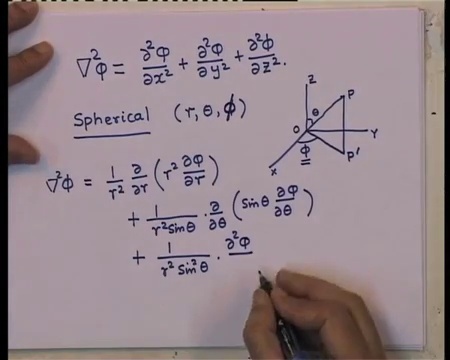 ∇²φ = ∂²φ/∂x² + ∂²φ/∂y² + ∂²φ/∂z².
Spherical (r, θ, ϕ)
Z
P
θ
O
Y
ϕ
P'
X
∇²φ = 1/r² ∂/∂r (r² ∂φ/∂r)
+ 1/r² sinθ · ∂/∂θ (sinθ ∂φ/∂θ)
+ 1/r² sin²θ · ∂²φ